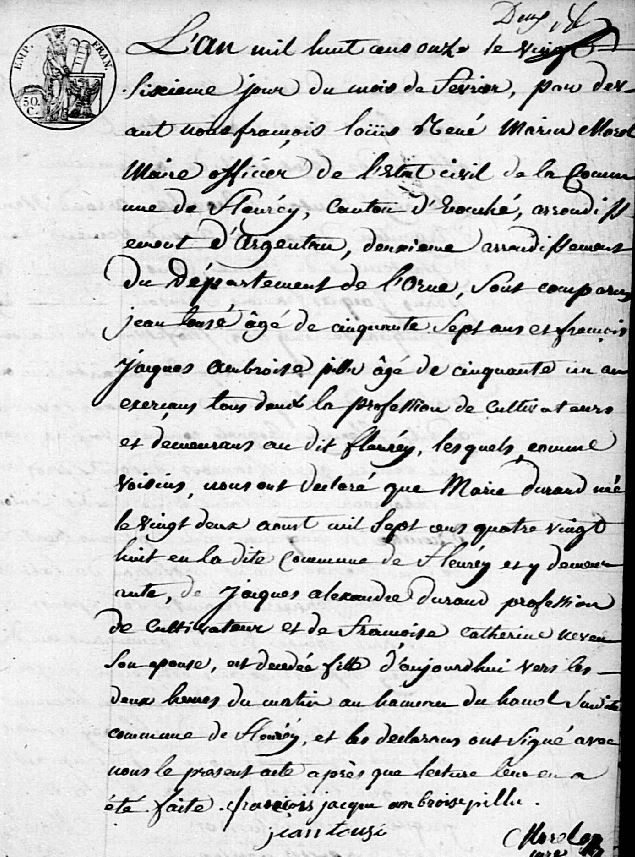 EMP. FRAN.
50. C.
L'an mil huit cens onze le vingt
sixieme jour du mois de fevrier, par dev
ant nous françois loüis René Marin Morel
Maire officier de l'Etat civil de la Commu
ne de fleuréy, Canton d'Ecouché, arrondiss
ement d'Argentan, deuxieme arrondissement
du Département de l'Orne, sont comparus
jean âgé de cinquante sept ans et françois
Jaques ambroise pillu âgé de cinquante un an
exerçans tous deux la profession de cultivateurs
et demeurans au dit fleuréy, lesquels, comme
voisins, nous ont declaré que Marie durand née
le vingt deux aout mil sept cens quatre vingt
huit en la dite Commune de fleuréy et y demeur
ante, de Jaques alexandre durand profession
de cultivateur et de francoise catherine
son epouse, est decedée d'aujourdhui vers les
deux heures du matin au hameau du susdite
commune de fleuréy, et les declarans ont signé avec
nous le present acte après que lecture leur en a
été faite. francois jacque ambroise pillu.
jean
Morel